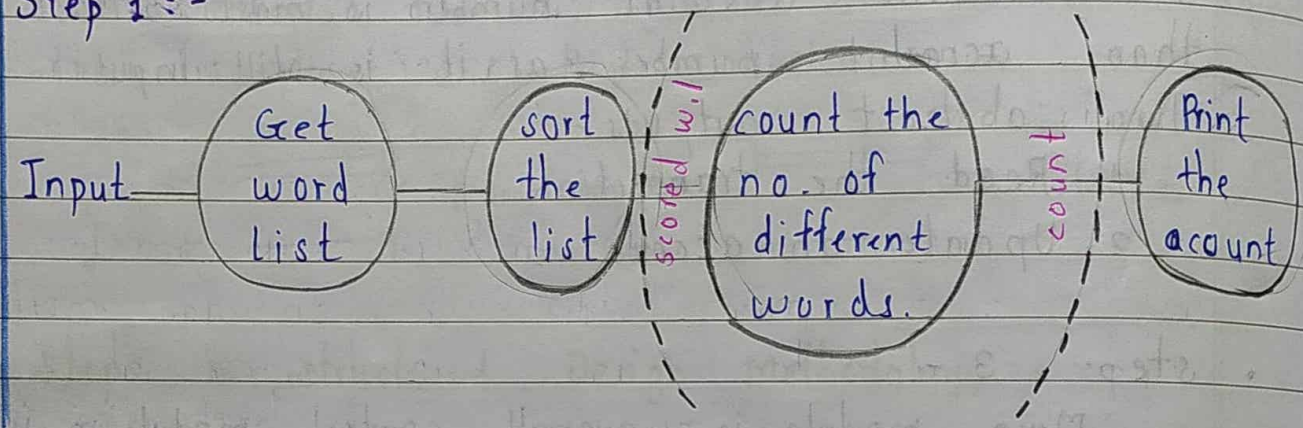 Step 1:-
Input
Get
word
list
sort
the
list
scored w.l
count the
no. of
different
words.
count
Print
the
acount